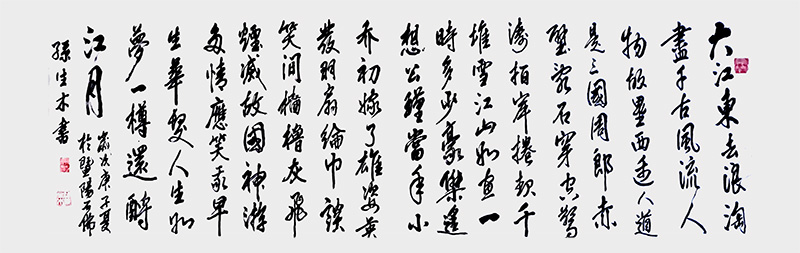 大江東去浪淘
盡千古風流人
物故壘西邊人道
是三國周郎赤
壁亂石穿空驚
濤拍岸捲起千
堆雪江山如畫一
時多少豪傑遙
想公瑾當年小
乔初嫁了雄姿英
發羽扇綸巾談
笑間檣櫓灰飛
煙滅故國神游
多情應笑我早
生華髮人生如
夢一樽還酹
江月
歲次庚子夏
於暨陽石佛
孫生木書